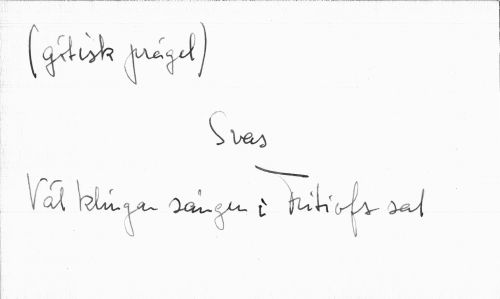 (götisk prägel)
Svas
Väl klingar sången i Fritiofs sal